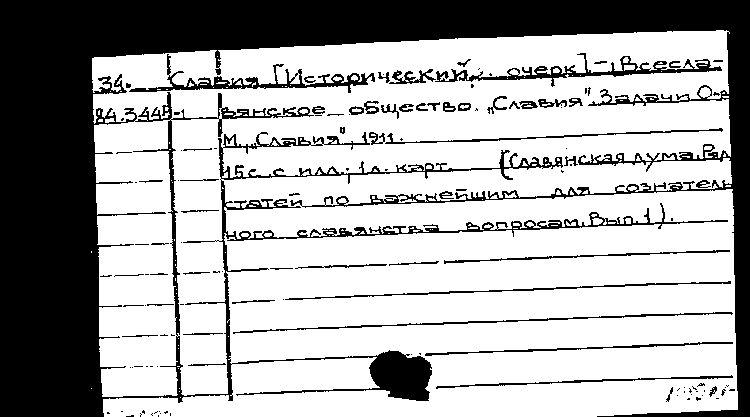 34. Славия [Исторический очерк] - Всесла-
84.3.445-1 вянское общество „Славия". Задачи О-ва
М., „Славия", 1911.
15с. с илл.; 1л. карт. (Славянская дума. Ряд
статей по важнейшим для сознатель
ного славянства вопросам. Вып. 1).